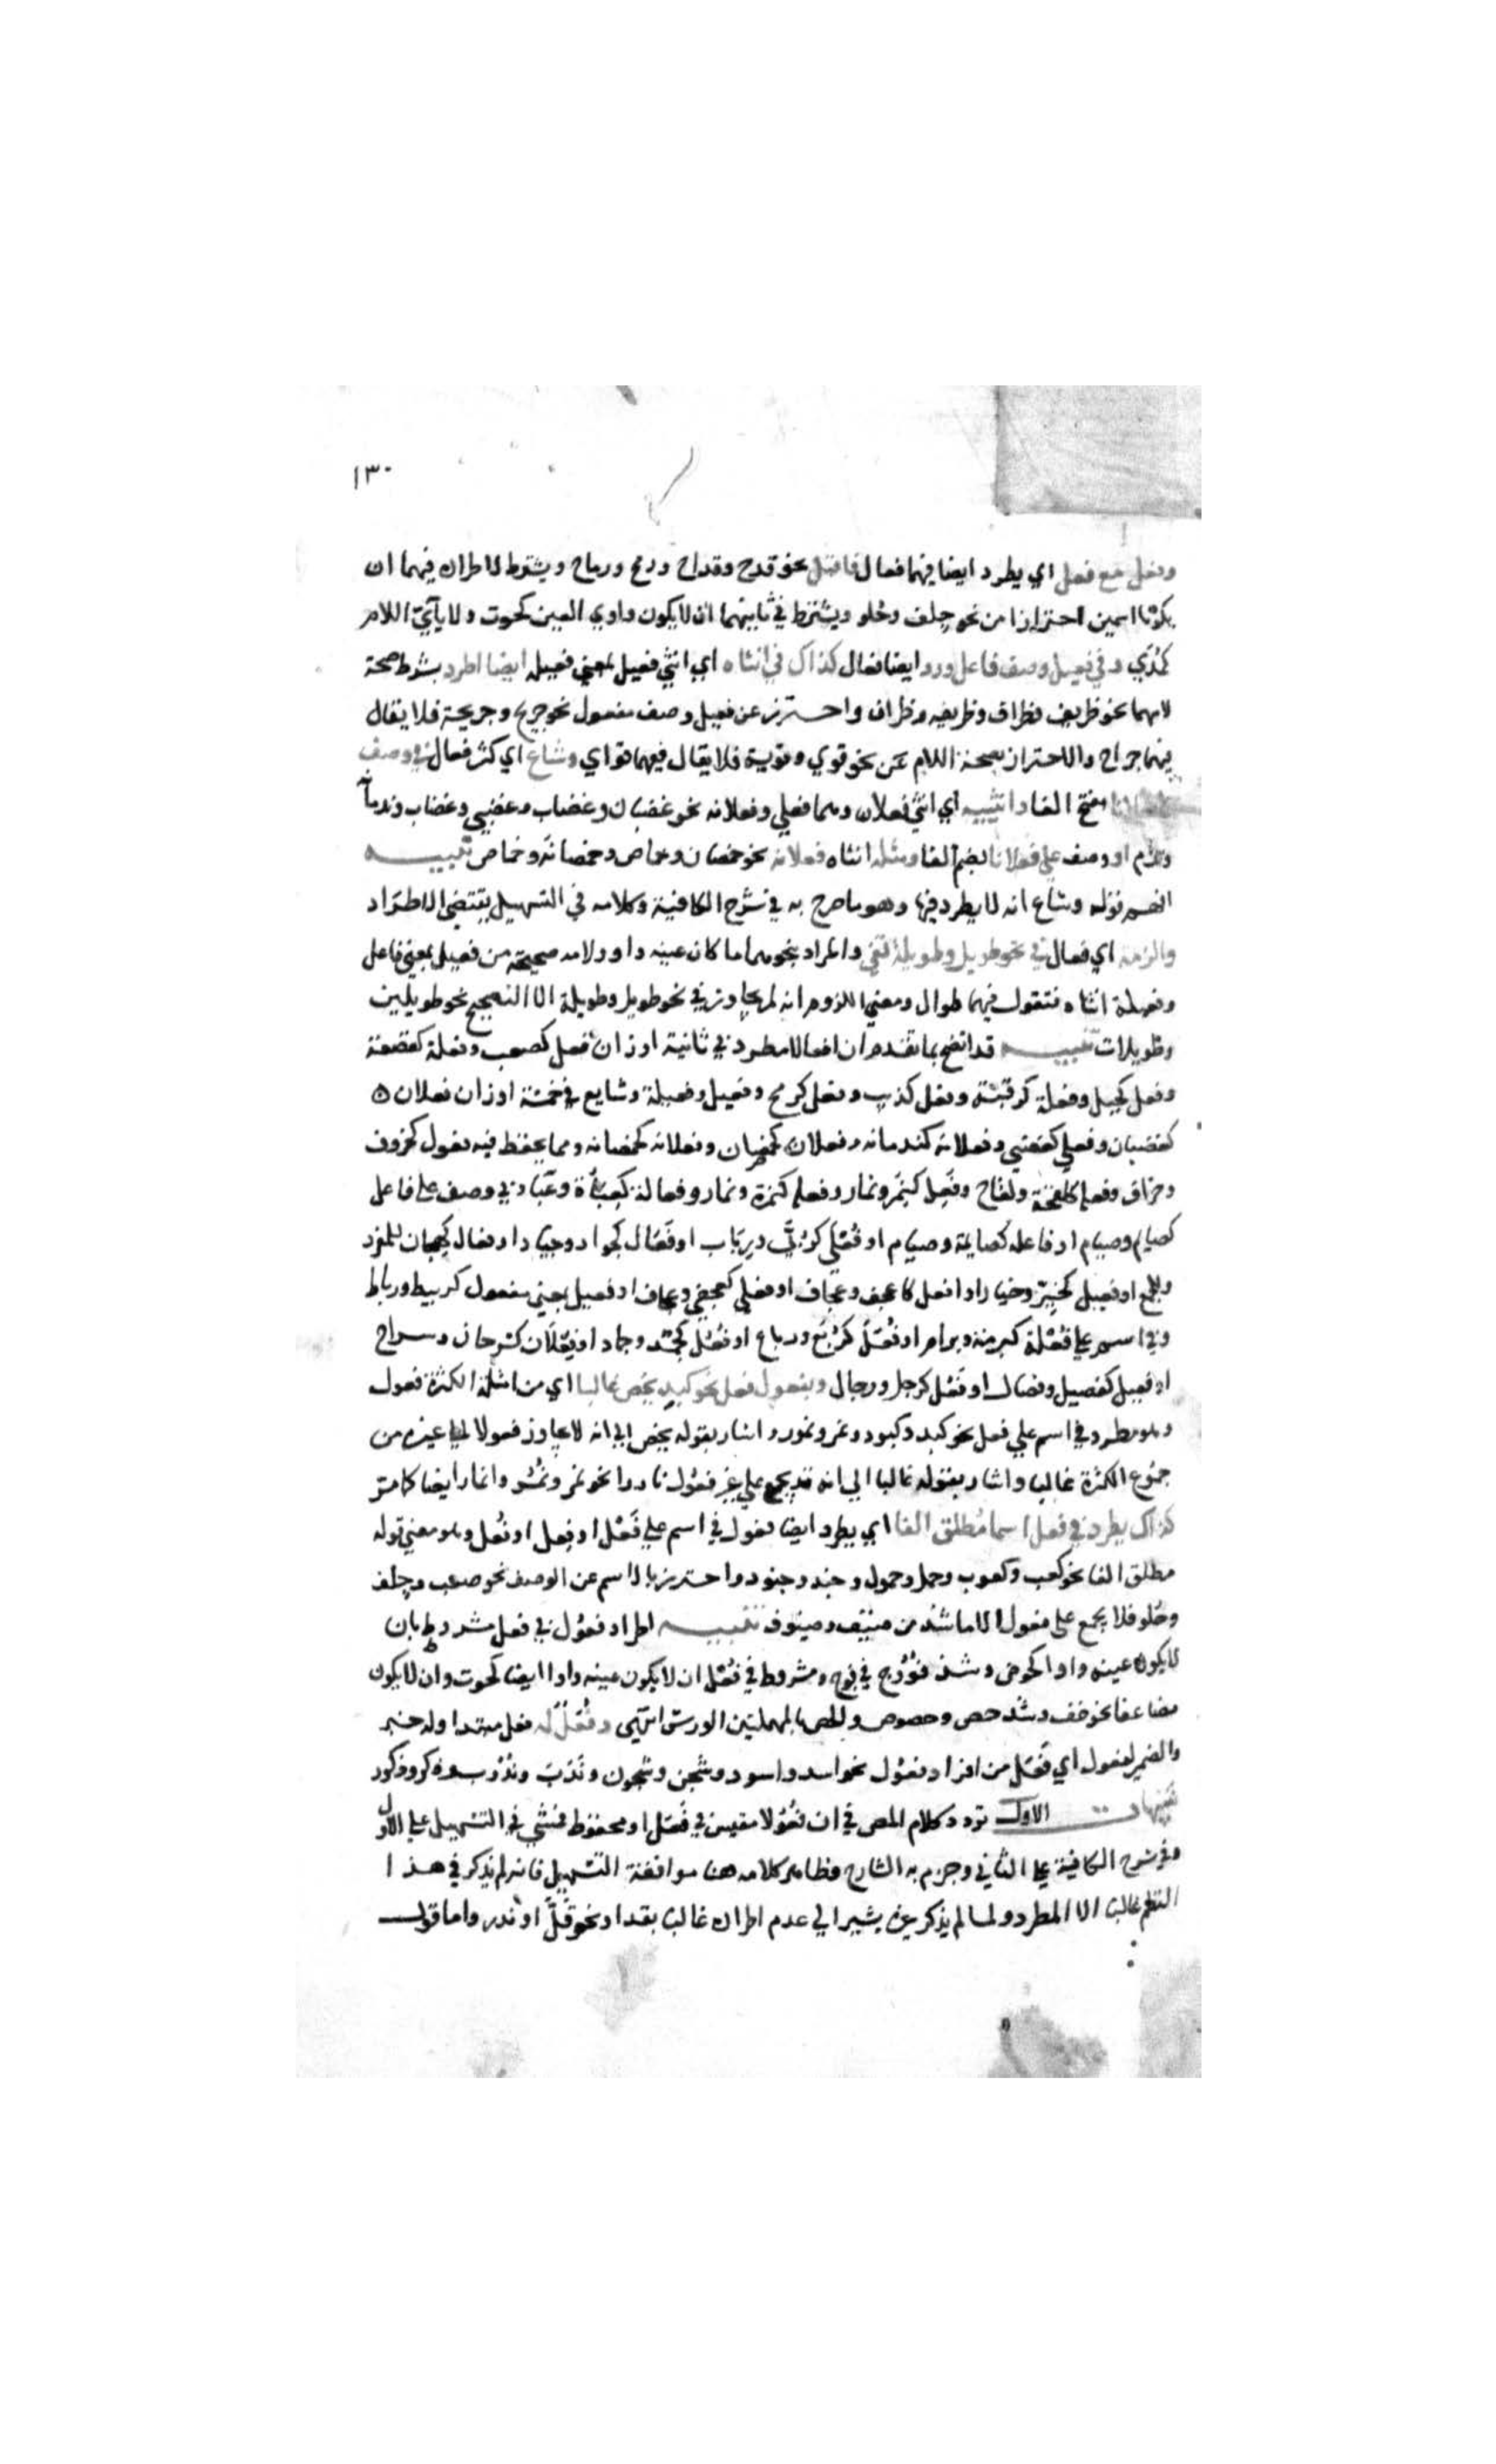 ١٣٠
وفعل مع فعل اي يطرد ايضا فيهما فعال فاقبل نحو قدح وقداح ورمح ورماح ويشترط لاطراده فيهما ان
يكونا اسمين احترازا من نحو جلف وحلو ويشترط في ثانيهما ان لا يكون واوي العين كحوت ولا يآئي اللام
كمدي وفي فعيل وصف فاعل ورد ايضا فعال كذاك في انثاه اي انثي فعيل بمعني فعيله ايضا اطرد بشرط صحة
لامهما نحو ظريف وظراف وظريفه وظراف واحترز عن فعيل وصف مفعول نحو جريح وجريحة فلا يقال
فيهما جراح والاحتراز بصحة اللام عن نحو قوي وقوية فلا يقال فيهما قواي وشاع اي كثر فعال في وصف
بفتح الفا وانثييه اي انثي فعلان وهما فعلي وفعلانه نحو غضبان وغضاب وغضبي وغضاب وندمانه
وندام او وصف علي فعلانا بضم الفا ومثله انثاه فعلانه نحو خمصان وخماص وخمصانة وخماص تنبيه
افهم قوله وشاع انه لا يطرد فيها وهو ما صرح به في شرح الكافية وكلامه في التسهيل يقتضي الاطراد
والزمه اي فعال في نحو طويل وطويلة تفي والمراد بنحوهما ما كان عينه واو ولامه صحيحة من فعيل بمعني فاعل
وفعيلة انثاه فتقول فيهما طوال ومعني اللزوم انه لم يجاوز في نحو طويل وطويلة الا التصحيح نحو طويلين
وطويلات تنبيه قد اتضح بما تقدم ان فعالا مطرد في ثمانية اوزان فعل كصعب وفعلة كقصعة
وفعل كجبل وفعلة كرقبة وفعل كذيب وفعل كرمح وفعيل وفعيلة وشايع في خمسة اوزان فعلان ه
كغضبان وفعلي كغضبي وفعلانه كندمانه وفعلان كخمصان وفعلانه كخمصانه ومما يحفظ فيه فعول كخروف
وخراف وفعله كلقحة ولقاح وفعل كنمر ونمار وفعله كنمرة ونمار وفعالة كعباءة وعباد في وصف علي فاعل
كصايم وصيام او فاعله كصايمة وصيام او فعلي كربي ورباب او فعال كجواد وجياد او فعال كهجان للمفرد
والجمع او فيعل كخير وخيار او افعل كاعجف وعجاف او فعلي كعجفي وعجاف او فعيل بمعني مفعول كربيط ورباط
وفي اسم علي فعلة كبرمة وبرام او فعل كربع ورباع او فعل كجمد وجماد او فعلان كسرحان وسراح
او فعيل كفصيل وفصال او فعل كرجل ورجال وبفعول فعل نحو كبد يخص غالبا اي من امثلة الكثرة فعول
وهو مطرد في اسم علي فعل نحو كبد وكبود ونمر ونمور واشار بقوله يخص الي انه لا يجاوز فعولا الي غيره من
جموع الكثرة غالبا واشار بقوله غالبا الي انه قد يجمع علي غير فعول نادرا نحو نمر ونمر وانمار ايضا كما مر
كذاك يطرد في فعل اسما مطلق الفا اي يطرد ايضا فعول في اسم علي فعل او فعل او فعل وهو معني قوله
مطلق الفا نحو كعب وكعوب وحمل وحمول وجند وجنود واحترز بالاسم عن الوصف نحو صعب وجلف
وحلو فلا يجمع علي فعول الا ما شذ من ضيف وضيوف تنبيه اطراد فعول في فعل مشروط بان
لا يكون عينه واوا كحوض وشذ فووج في فوج ومشروط في فعل ان لا يكون عينه واوا ايضا كحوت وان لا يكون
مضاعفا نحو خف وشذ حص وحصوص والحص بالمهملتين الورس انتهى وفعل له فعل مبتدا وله خبر
والضمير لفعول اي فعل من افراد فعول نحو اسد واسود وشجن وشجون وندب وندوب وذكر وذكور
تنبيهات الاول تردد كلام المص في ان فعولا مقيس في فعل او محفوظ فمشي في التسهيل علي الاول
وفي شرح الكافية علي الثاني وجزم به الشارح وظاهر كلامه هنا موافقة التسهيل فانه لم يذكر في هذا
النظم غالبا الا المطرد ولما لم يذكر غيره يشير الي عدم اطراده غالبا بقد او نحو قل او ندر واما قوله